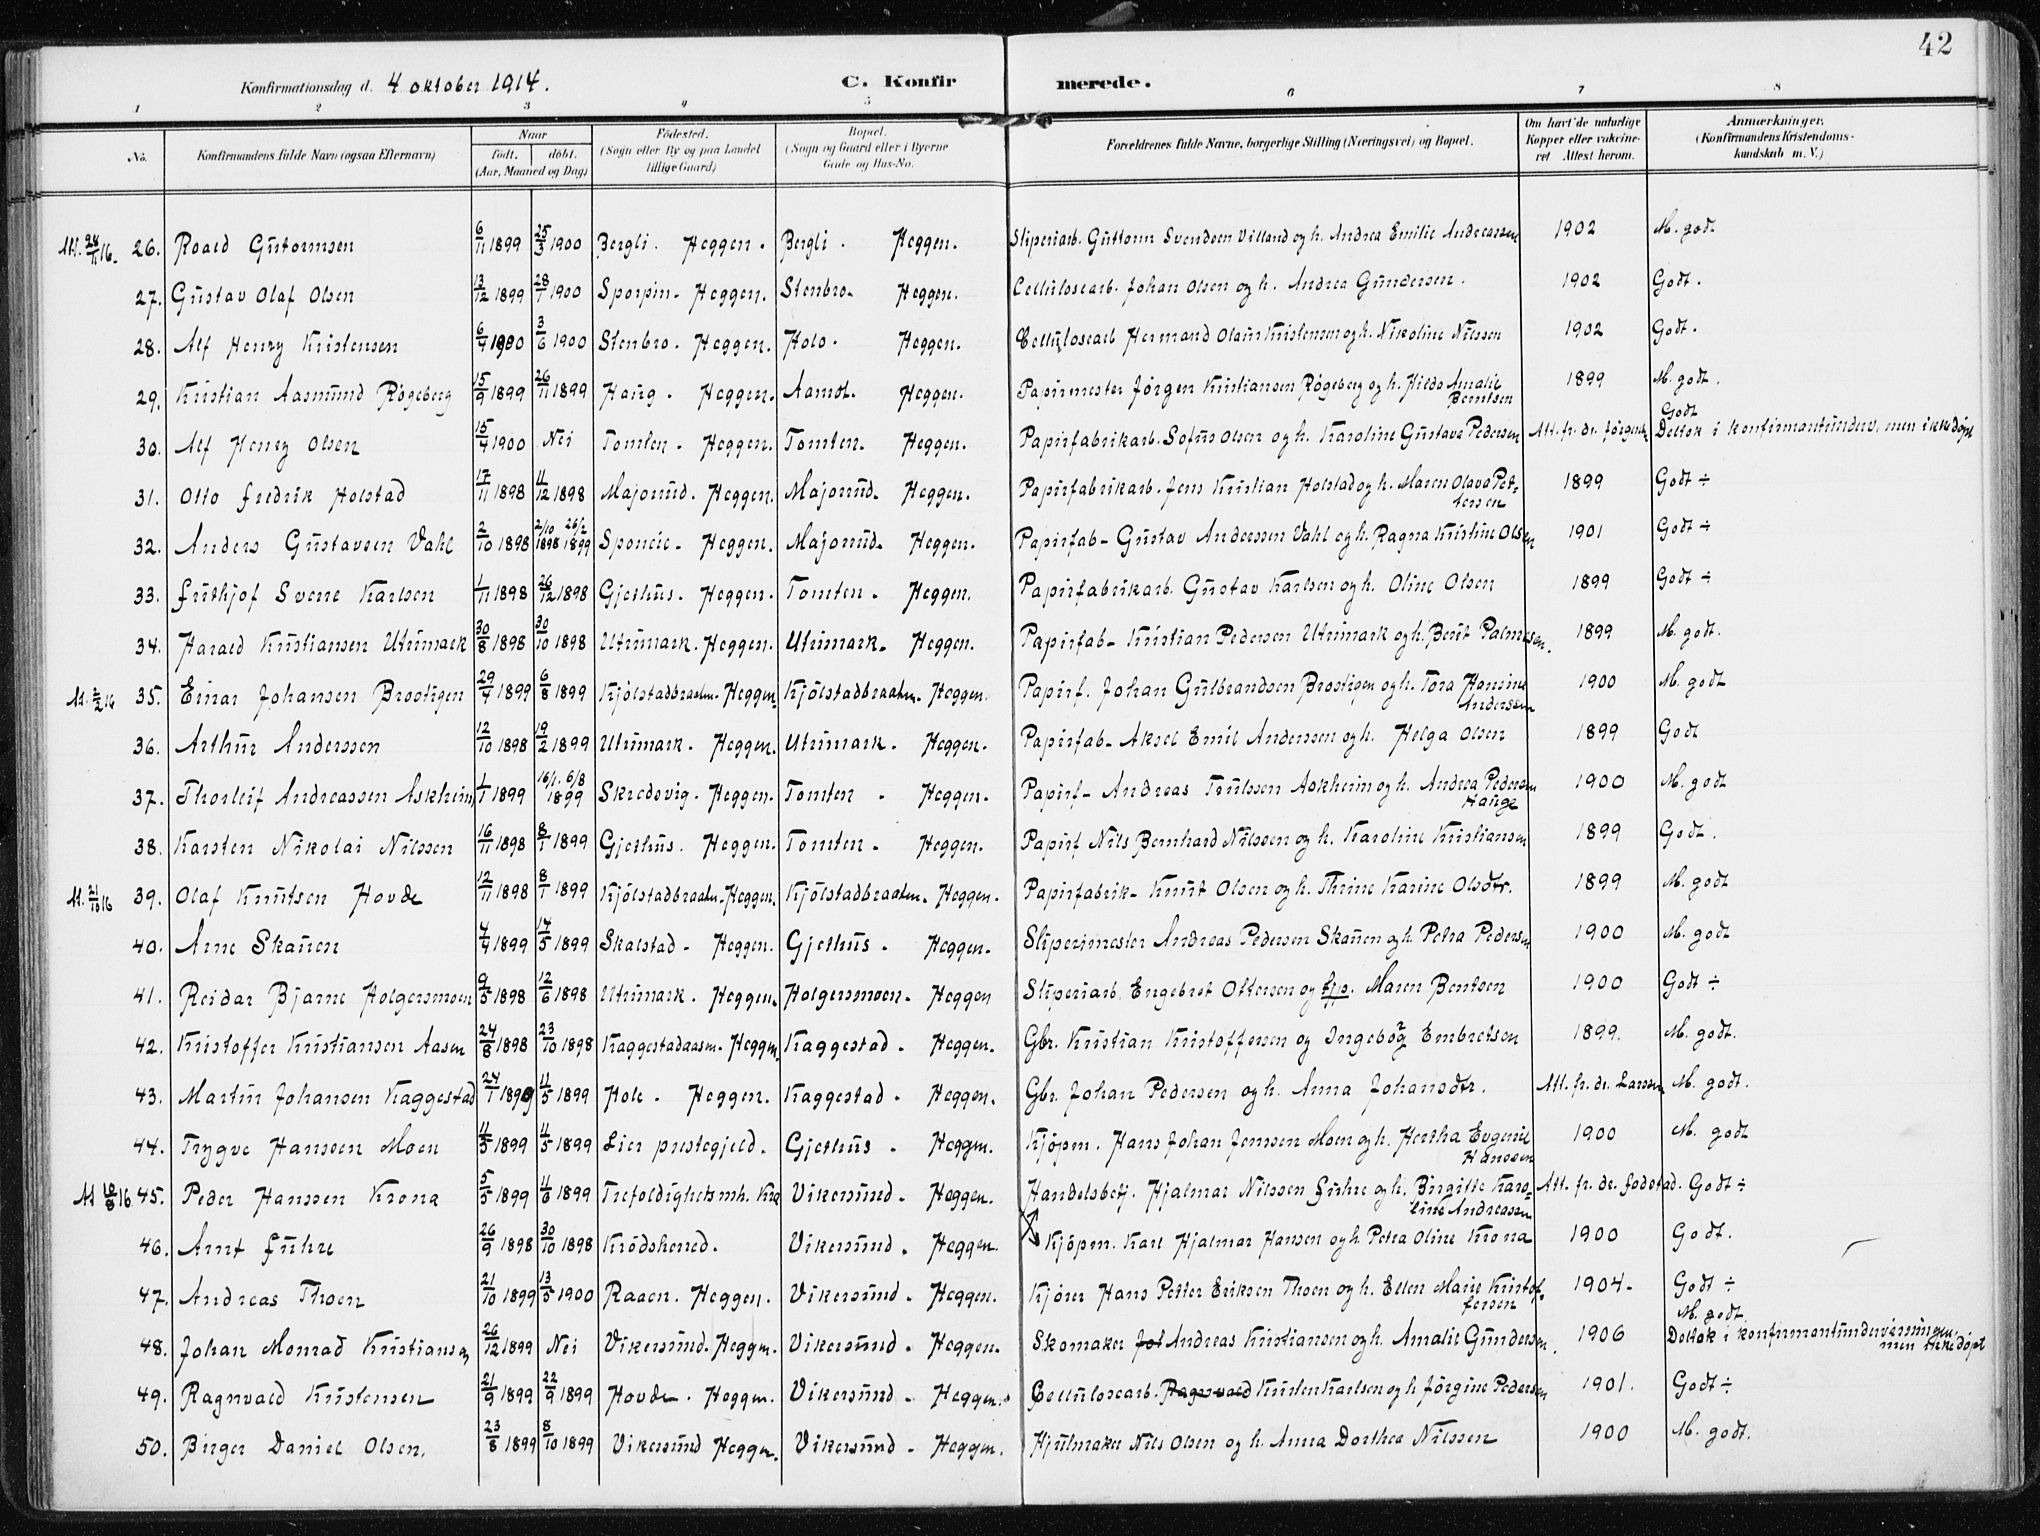 42
Konfirmationsdag d. 4 oktober 1914.
C. Konfirmerede.
1 2 3 4 5 6 7 8
No. Konfirmandens fulde Navn (ogsaa Efternavn) Naar født. døbt. (Aar, Maaned og Dag) Fødested. (Sogn eller By og paa Landet tillige Gaard) Bopæl. (Sogn og Gaard eller i Byerne Gade og Hus-No. Forældrenes fulde Navne, borgerlige Stilling (Næringsvei) og Bopæl. Om havt de naturlige Kopper eller vakcineret Attest herom. Anmærkninger. (Konfirmandens Kristendomskundskab m. V.)
26. Roald Gutormsen 6/11 1899 25/3 1900 Bergli. Heggen. Bergli. Heggen. Sliperiarb. Guttorm Svendsen Villand og h. Andrea Emilie Andreassen 1902 M. godt
27. Gustav Olaf Olsen 13/12 1899 28/1 1900 Sporpin. Heggen. Stenbro. Heggen. Cellulosearb. Johan Olsen og h. Andrea Gundersen. 1902 Godt.
28. Alf Henry Kristensen 6/4 1900 3/6 1900 Stenbro. Heggen. Holo. Heggen. Cellulosearb Hermand Olaus Kristensen og h. Nikoline Nilssen 1902 Godt.
29. Kristian Aasmund Røgeberg 15/9 1899 26/11 1899 Haug. Heggen. Aamot. Heggen. Papirmester Jørgen Kristiansen Røgeberg og h. Hilda Amalie Berntsen 1899 M. godt.
30. Alf Henry Olsen 15/4 1900 Nei Tomten. Heggen. Tomten. Heggen. Papirfabrikarb. Sofus Olsen og h. Karoline Gustava Pedersen Att. fr. dr. Jørgens. Godt Deltok i konfirmantunderv. men ikke døpt
31. Otto Fredrik Holstad 17/11 1898 11/12 1898 Majorud. Heggen. Majorud. Heggen. Papirfabrikarb. Jens Kristian Holstad og h. Maren Olava Pettersen 1899 Godt ÷
32. Anders Gustavsen Vahl 2/10 1898 2/10 1898 26/2 1899 Heggen. Majorud. Heggen. Papirfab- Gustav Anderssen Vahl og h. Ragna Kristine Olsen 1901 Godt ÷
33. Frithjof Svene Karlsen 1/11 1898 26/12 1898 Gjethus. Heggen. Tomten. Heggen. Papirfabrikarb. Gustav Karlsen og h. Oline Olsen 1899 Godt ÷
34. Harald Kristiansen Utrimark 30/8 1898 30/10 1898 Utrimark. Heggen. Utrimark. Heggen. Papirfab- Kristian Pedersen Utrimark og h. Berit Palmesen. 1899 M. godt.
At. 2/2 16 35. Einar Johansen Brostigen 29/4 1899 6/8 1899 Kjølstadbraaten. Heggen. Kjølstadbraaten. Heggen. Papirf. Johan Gulbrandsen Brostigen og h. Tora Hansine Anderssen 1900 M. godt
36. Arthur Anderssen 12/10 1898 19/2 1899 Utrimark. Heggen. Utrimark. Heggen. Papirfab- Aksel Emil Anderssen og h. Helga Olsen 1899 Godt
37. Thorleif Andreassen Askheim 1/1 1899 16/1. 6/8 1899 Skredsvig. Heggen. Tomten. Heggen. Papirf- Andreas Trulssen Askheim og h. Andrea Pedersen Hauge 1900 M. godt
38. Karsten Nikolai Nilssen 16/11 1898 8/1 1899 Gjethus. Heggen. Tomten. Heggen. Papirf Nils Bernhard Nilssen og h. Karoline Kristiansen 1899 Godt.
At. 21/10 16 39. Olaf Knutsen Hovde 12/11 1898 8/1 1899 Kjølstadbraaten. Heggen. Kjølstadbraaten. Heggen. Papirfabrik- Knut Olsen og h. Thrine Karine Olsdtr. 1899 M. godt
40. Arne Skauen 4/4 1899 14/5 1899 Skalstad. Heggen. Gjethus. Heggen. Sliperimester Andreas Pedersen Skauen og h. Petra Pedersen 1900 M. godt
41. Reidar Bjarne Holgersmoen 9/5 1898 12/6 1898 Utrimark. Heggen. Holgersmoen. Heggen Sliperiarb. Engebret Ottersen og Maren Bentsen 1900 Godt ÷
42. Kristoffer Kristiansen Aasen 24/8 1898 23/10 1898 Kaggestadaasen. Heggen. Kaggestad. Heggen. Gbr. Kristian Kristoffersen og Ingeborg Embretsen 1899. M. godt.
43. Martin Johansen Kaggestad 24/1 1899 11/5 1899 Hole. Heggen. Kaggestad. Heggen. Gbr. Johan Pedersen og h. Anna Johansdtr. Att. fr. dr. Larsen M. godt.
44. Trygve Hanssen Moen 11/3 1899 11/5 1899 Lier prestegjeld. Gjethus. Heggen. Kjøpm. Hans Johan Jenssen Moen og h. Hertha Evgenie Hanssen 1900 M. godt
45. Peder Hanssen Krona 5/5 1899 11/6 1899 Trefoldighetsmh. Kra Vikersund. Heggen. Handelsbetj. Hjalmar Nilssen Fuhre og h. Birgitte Karoline Andreassen Att. fr. dr. Godt ÷
46. Arnt Fuhre 26/9 1898 30/10 1898 Krødshered. Vikersund. Heggen. Kjøpm. Karl Hjalmar Hansen og h. Petra Oline Krona 1900 Godt.
47. Andreas Thoen 21/10 1899 13/5 1900 Raaen. Heggen. Vikersund. Heggen. Kjører Hans Petter Eriksen Thoen og h. Ellen Marie Kristoffersen 1904- Godt ÷
48. Johan Monrad Kristiansen 26/12 1899 Nei Vikersund. Heggen. Vikersund. Heggen. Skomaker Joh Andreas Kristiansen og h. Amalie Gundersen. 1906 M. godt. Deltok i konfirmantundervisningen, men ikke døpt
49. Ragnvald Kristensen 21/9 1899 22/9 1899 Hovde. Heggen. Vikersund. Heggen. Cellulosearb. Ragnvald Kristen Karlsen og h Jørgine Pedersen 1901. Godt ÷
50. Birger Daniel Olsen. 23/8 1899 8/10 1899 Vikersund Heggen. Vikersund. Heggen. Hjulmaker Nils Olsen og h. Anna Dorthea Nilssen 1900 M. godt.